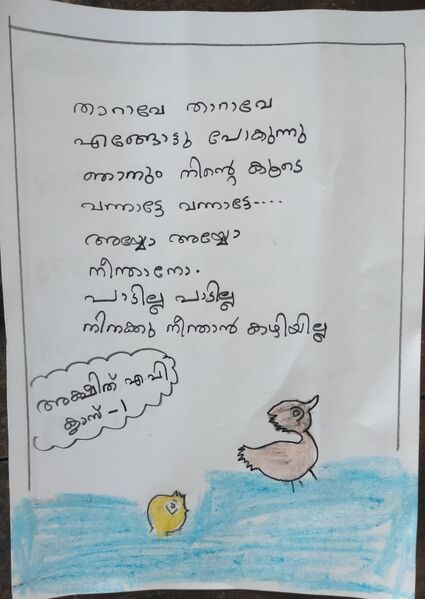 താറാവേ താറാവേ
എങ്ങോട്ടു പോകുന്നു
ഞാനും നിന്റെ കൂടെ
വന്നാട്ടേ വന്നാട്ടേ----
അയ്യോ അയ്യോ
നീന്താനോ.
പാടില്ല പാടില്ല
നിനക്കു നീന്താൻ കഴിയില്ല
അക്ഷിത് എ.പി
ക്ലാസ് -1